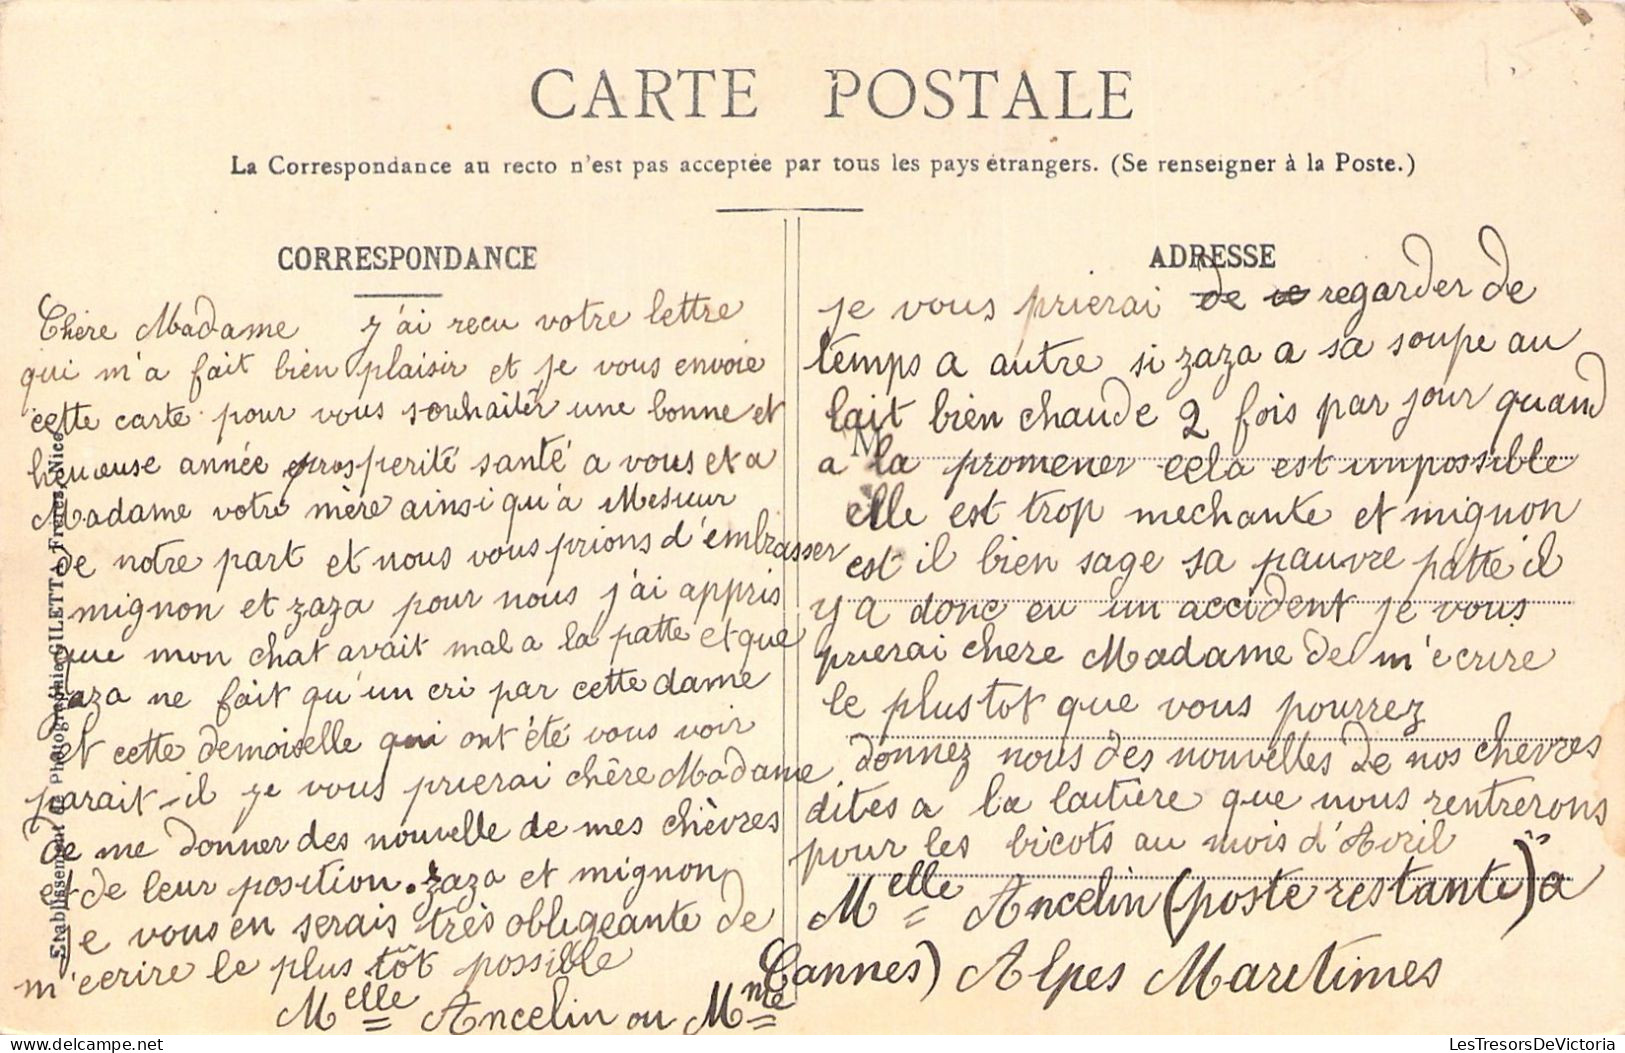 CARTE POSTALE
La Correspondance au recto n'est pas acceptée par tous les pays étrangers. (Se renseigner à la Poste.)
CORRESPONDANCE
Chère Madame j'ai recu votre lettre
qui m'a fait bien plaisir et je vous envoie
cette carte pour vous souhaiter une bonne et
heureuse année prosperité santé a vous et a
Madame votre mère ainsi qu'a Mesieur
de notre part et nous vous prions d'embrasser
mignon et zaza pour nous j'ai appris
que mon chat avait mal a la patte et que
zaza ne fait qu'un cri par cette dame
et cette demoiselle qui ont été vous voir
parait-il je vous prierai chère Madame
de me donner des nouvelle de mes chèvres
et de leur position. zaza et mignon
je vous en serais très obligeante de
m'ecrire le plus tôt possible
Melle Ancelin ou Mme
ADRESSE
je vous prierai de regarder de
temps a autre si zaza a sa soupe au
lait bien chaude 2 fois par jour quand
M
a la promener cela est impossible
elle est trop mechante et mignon
est il bien sage sa pauvre patte il
y a donc eu un accident je vous
prierai chere Madame de m'ecrire
le plus tot que vous pourrez
donnez nous des nouvelles de nos chevres
dites a la laitière que nous rentrerons
pour les bicots au mois d'Avril
Melle Ancelin (poste restante) a
Cannes) Alpes Maritimes
Etablissement de Photographie GILETTA, Frères, Nice
delcampe.net
LesTresorsDeVictoria